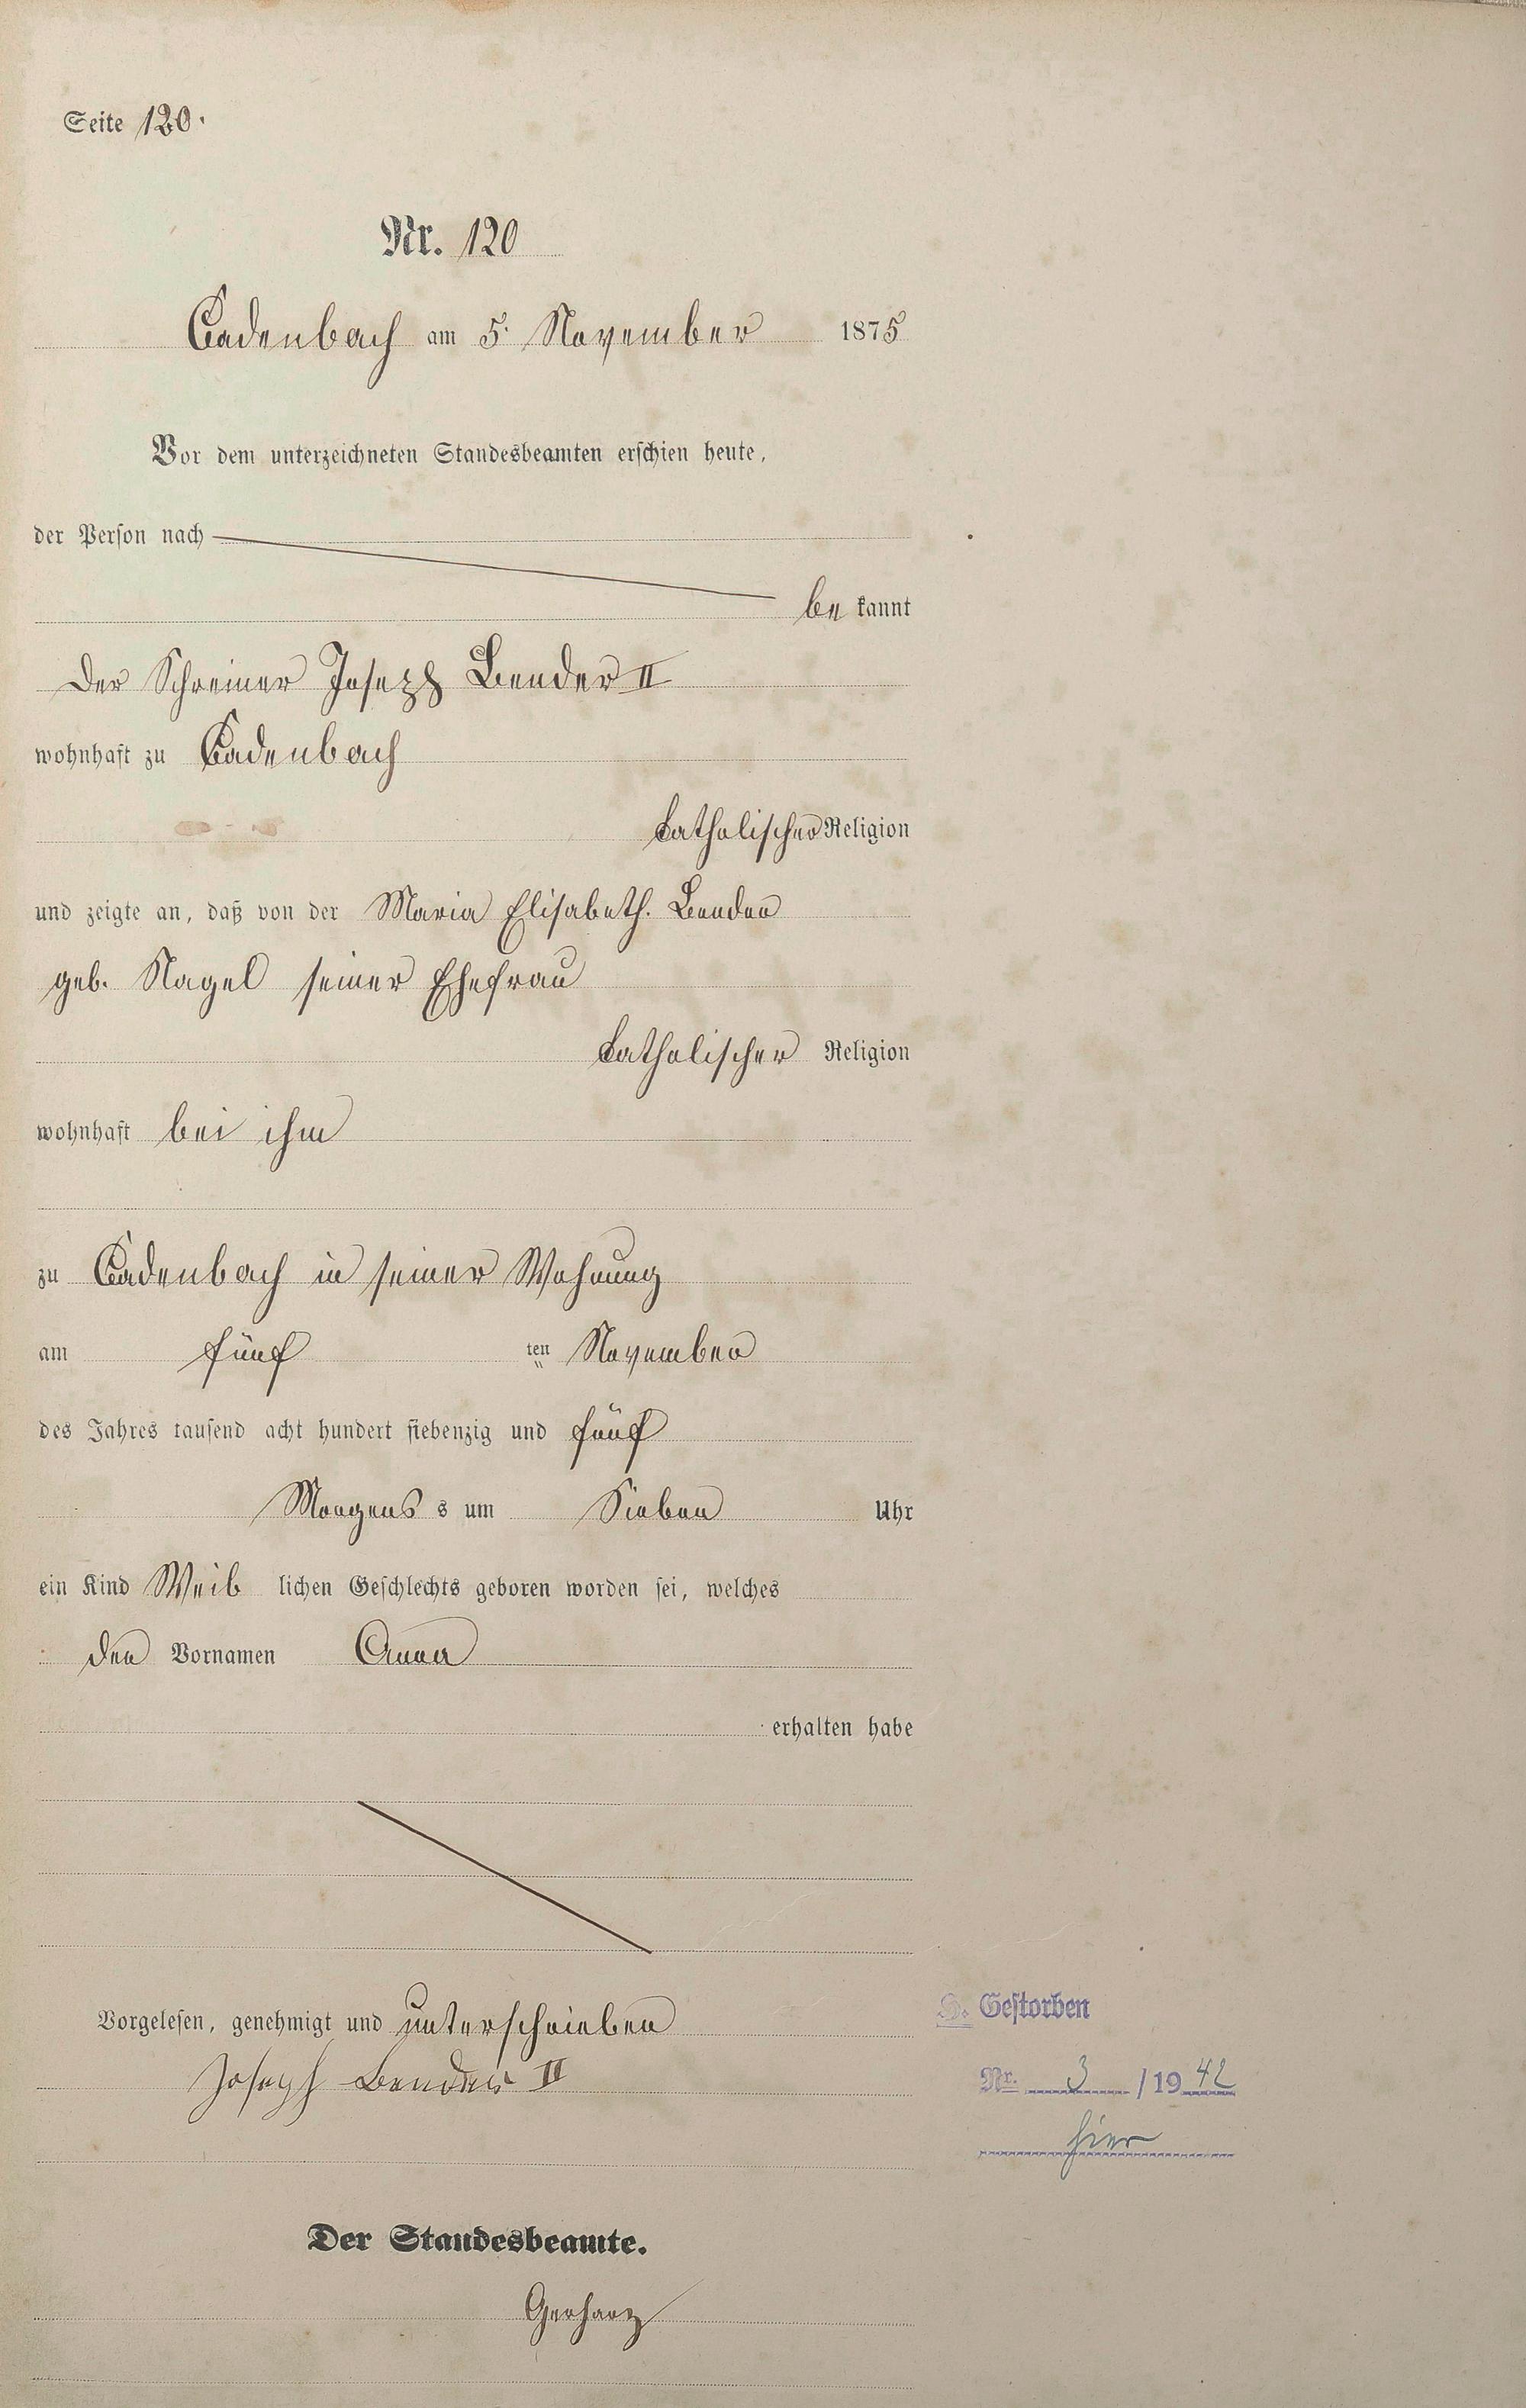 Seite 120.
Nr. 120
Cadenbach am 5. November 1875
Vor dem unterzeichneten Standesbeamten erschien heute,
der Person nach
be kannt
Der Schreiner Joseph Bender II
wohnhaft zu Cadenbach
katholischer Religion
und zeigte an, daß von der Maria Elisabeth. Bender
geb. Nagel seiner Ehefrau
katholischer Religion
wohnhaft bei ihm
zu Cadenbach in seiner Wohnung
am fünf ten November
des Jahres tausend acht hundert siebenzig und fünf
Morgens s um Sieben Uhr
ein Kind Weib lichen Geschlechts geboren worden sei, welches
den Vornamen Anna
erhalten habe
Vorgelesen, genehmigt und unterschrieben
Joseph Bender II
Der Standesbeamte.
Gerharz
H. Gestorben
Nr. 3 / 19 42
hier